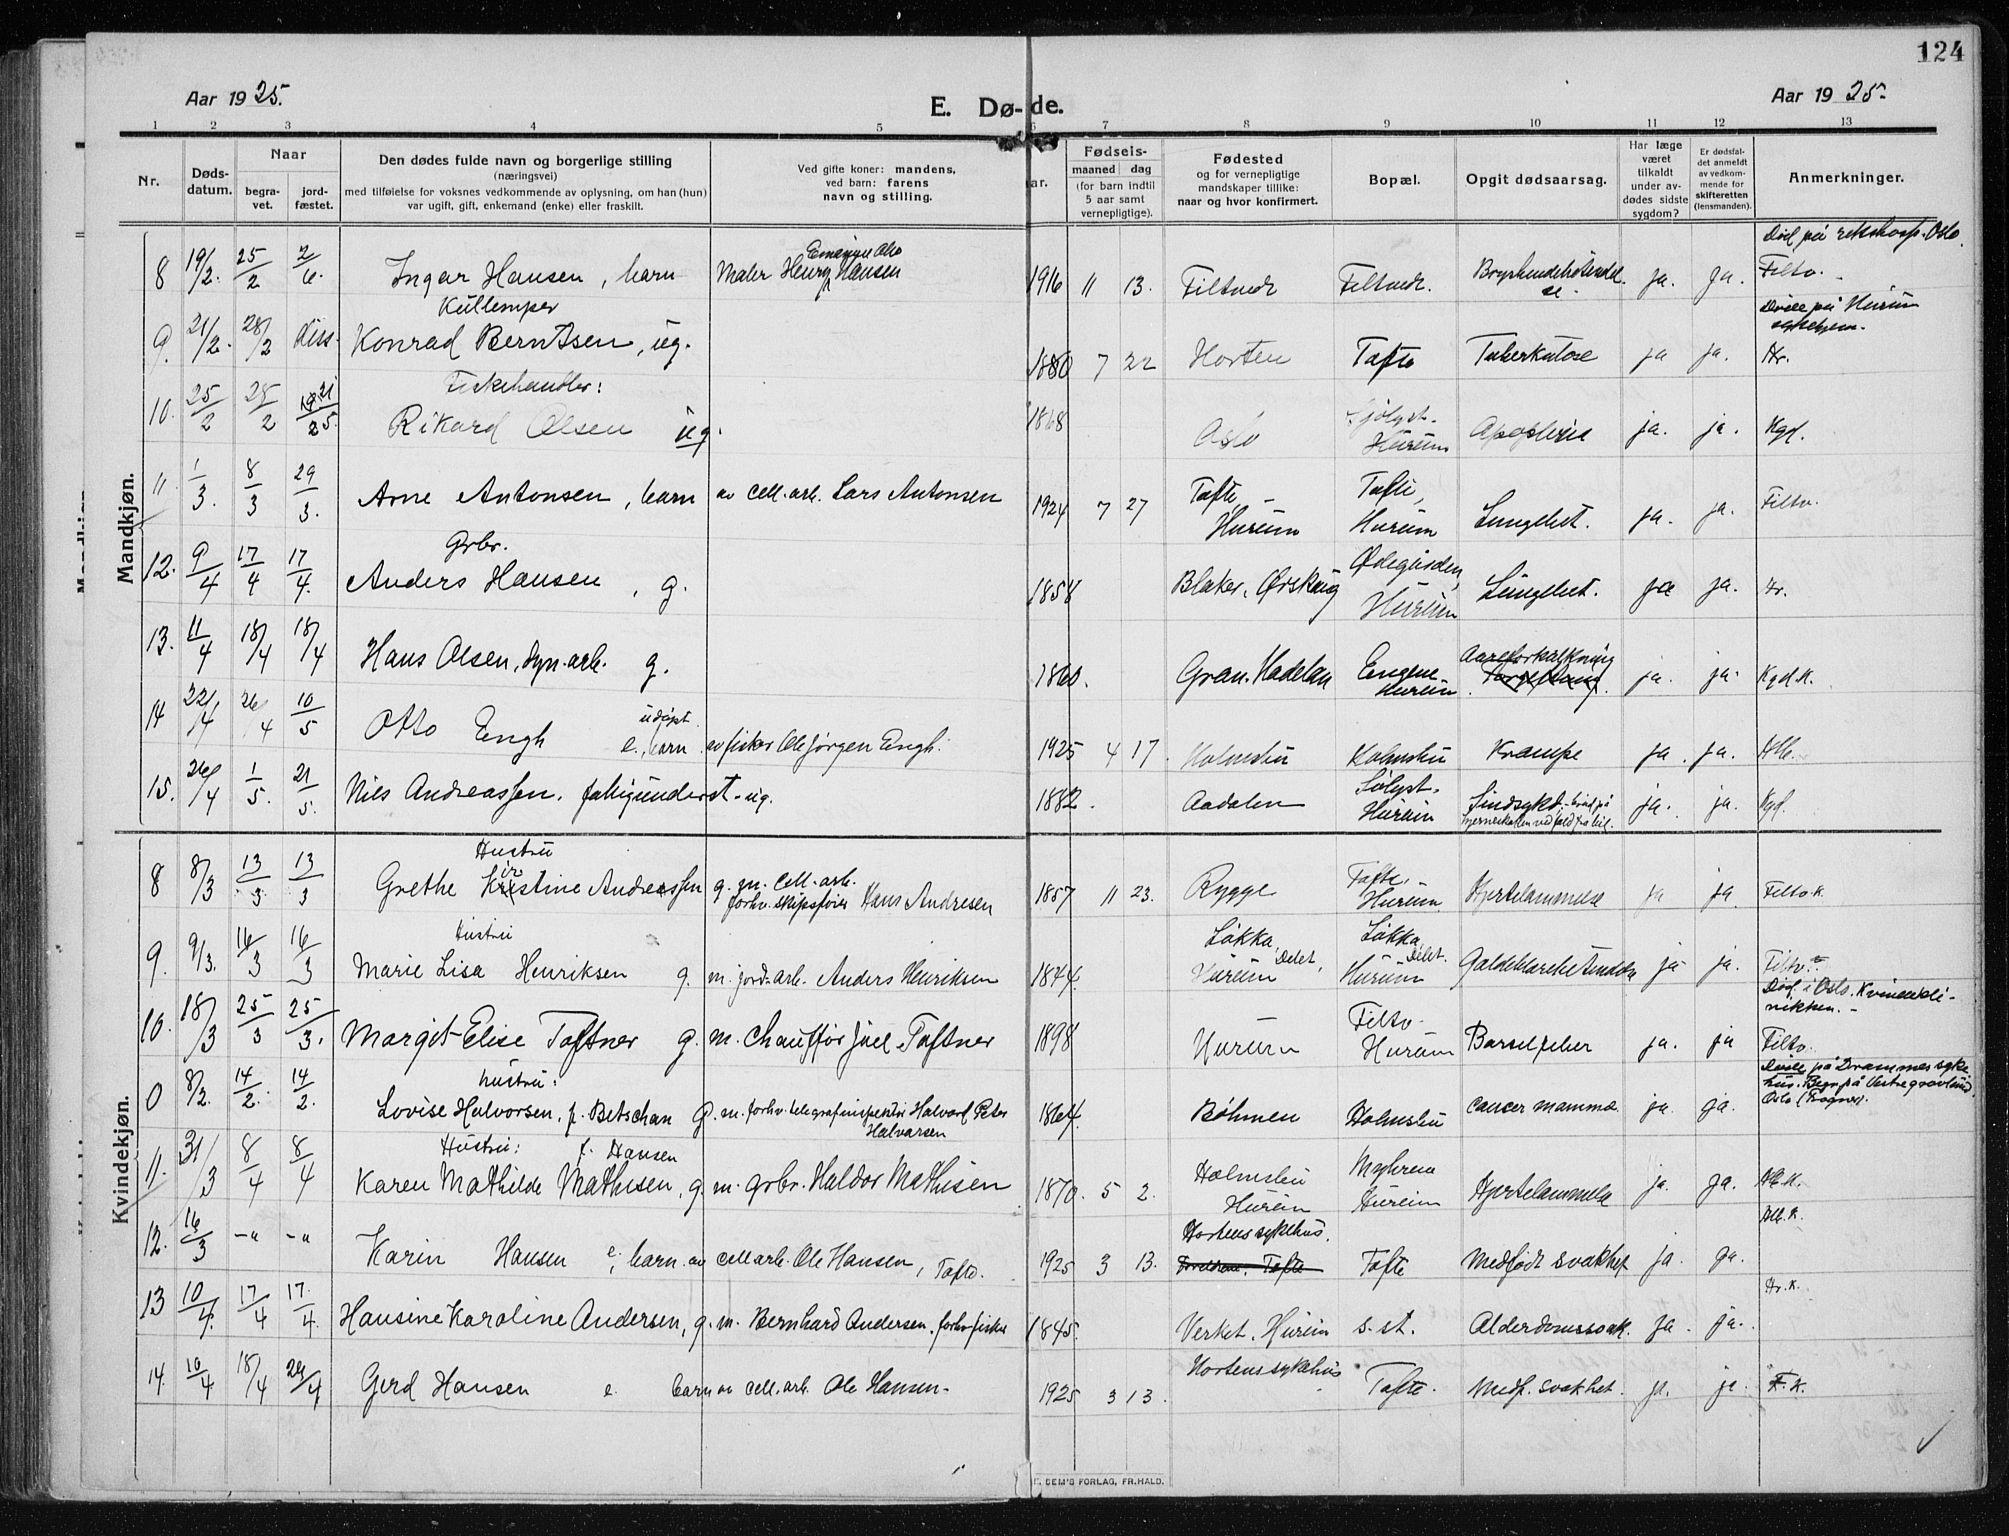 124
Aar 1925.
E. Dø-de.
Aar 1925.
1 2 3 4 5 6 7 8 9 10 11 12 13
Nr.
Døds-datum.
Naar
begra-vet.
jord-fæstet.
Den dødes fulde navn og borgerlige stilling
(næringsvei)
med tilføielse for voksnes vedkommende av oplysning, om han (hun)
var ugift, gift, enkemand (enke) eller fraskilt.
Ved gifte koner: mandens,
ved barn: farens
navn og stilling.
ar.
Fødsels-
maaned dag
(for barn indtil
5 aar samt
vernepligtige).
Fødested
og for vernepligtige
mandskaper tillike:
naar og hvor konfirmert.
Bopæl.
Opgit dødsaarsag.
Har læge
været
tilkaldt
under av-
dødes sidste
sygdom?
Er dødsfal-
det anmeldt
av vedkom-
mende for
skifteretten
(lensmanden).
Anmerkninger.
Mandkjøn.
Død på rikshosp. Oslo.
8 19/2. 25/2 2/6. Ingar Hansen, barn Maler Henry Hansen 1916 11 13. Filtvedt Filtvedt. ja. ja. Filtv.
Kullemper
Døde på Hurum
sykehjem.
9. 21/2. 28/2 diss. Konrad Berntsen, ug. 1880 7 22 Horten Tofte Tuberkulose ja ja. Hr.
Fiskehandler:
10. 25/2 28/2 Rikard Olsen ug. 1868 Oslo Sjølyst. Hurum Apoplexia ja. ja. Kgd.
11. 1/3. 8/3 29/3. Arne Antonsen, barn av cell. arb. Lars Antonsen 1924 7 27 Tofte, Hurum Tofte, Hurum Lungebet. ja. ja. Filtv.
Grbr.
12. 9/4 17/4 17/4. Anders Hansen, g. 1858 Blaker, Ørskaug Ødegården, Hurum Lungebet. ja ja. Hr.
13. 11/4 18/4 18/4 Hans Olsen, dyn. arb. g. 1860. Gran. Hadelan Engene Hurum Aareforkalkning ja. ja. Kgd.K.
udøpt
14 22/4 26/4 10/5 Otto Engh e. barn av fisker Ole Jørgen Engh. 1925 4 17. Holmsbu Holmsbu Krampe ja. ja. Hlb.
15. 26/4 1/5. 21/5. Nils Andreassen. fattigunderst. ug. 1882. Aadalen Sølyst. Hurum Sindsykd. - brud på hjerneskallen ved fald fra bil. ja. ja. Kgd.
Kvindekjøn.
Hustru
8 8/3 13/3 13/3 Grethe Kirstine Andreassen g. m. cell. arb. forhv. skipsfører Hans Andresen 1857 11 23. Rygge Tofte, Hurum. Hjertelammelse ja ja Filtv.K.
Hustru
9. 9/3. 16/3 16/3 Marie Lisa Henriksen g. m. jord. arb. Anders Henriksen 1874. Løkka, Delet, Hurum Løkka Delet. Hurum ja ja. Filtv.
Død. i Oslo. Kvindekli-
nikken.
10. 18/3 25/3 25/3. Margit Elise Toftner g. m. Chauffør Juel Toftner 1898 Hurum Filtv. Hurum Barselfeber ja. ja Filtv.
hustru:
Døde på Drammens syke
hus. Begr. på Vestre gravlund,
Oslo (Frogner).
0 8/2. 14/2. 14/2. Lovise Halvorsen, f. Betschan g. m. forhv. telegrafinspektør Halvard Peter Halvorsen 1864. Bøhmen Holmsbu cancer mammæ ja. ja.
Hustru: f. Hansen
11. 31/3 8/4 8/4 Karen Mathilde Mathisen, g. m. grbr. Haldor Mathisen 1870. 5 2. Holmsbu Hurum Myhrene Hurum Hjertelammelse ja. ja. Hlb.K.
12. 16/3 -"- -"- Karin Hansen e, barn av cell arb. Ole Hansen, Tofte. 1925 3 13. Hortens sykehus. Tofte Medfødt svakhet ja. ja. Hlb.K.
13 10/4. 17/4 17/4. Hansine Karoline Andersen, g. m. Bernhard Andersen. forhv. fisker 1845. Verket, Hurum s. st. Alderdomssvak. ja. ja. Hr.K.
14. 10/4. 18/4 24/4 Gerd Hansen e. barn av cell. arb. Ole Hansen. 1925 3 13. Hortens sykehus Tofte. Medf. svakhet. ja. ja. F.K.
DEM'S FORLAG, FR.HALD.